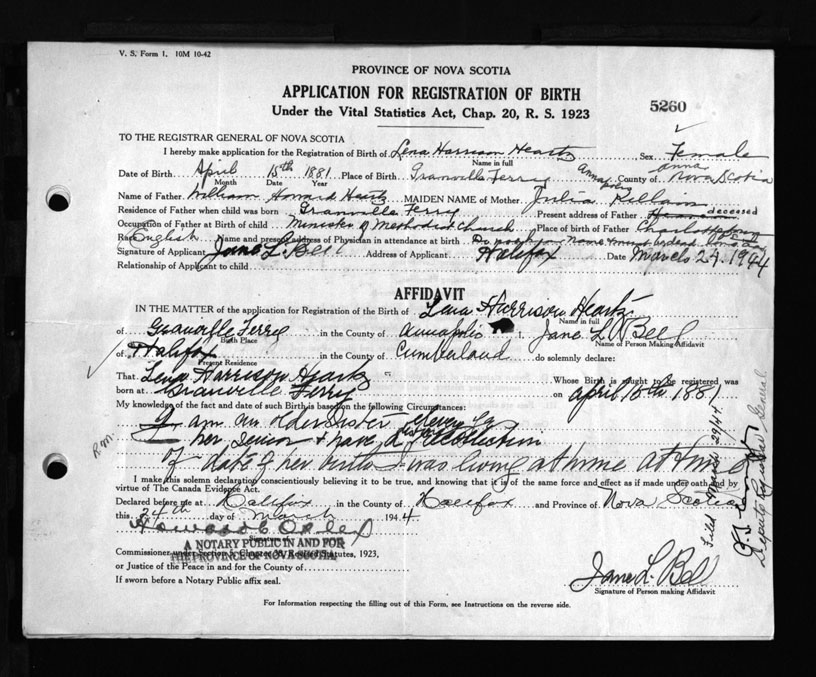 V. S. Form 1. 10M 10-42
PROVINCE OF NOVA SCOTIA
APPLICATION FOR REGISTRATION OF BIRTH
Under the Vital Statistics Act, Chap. 20, R. S. 1923
5260
TO THE REGISTRAR GENERAL OF NOVA SCOTIA
I hereby make application for the Registration of Birth of Lena Harrison Heartz Sex Female
Name in full
Date of Birth April 15th 1881 Place of Birth Granville Ferry Annapolis County of Anna Nova Scotia
Month Date Year
Name of Father William Howard Heartz MAIDEN NAME of Mother Julia
Residence of Father when child was born Granville Ferry Present address of Father deceased
Occupation of Father at Birth of child Minister of Methodist Church Place of birth of Father Charlottetown
Race English Name and present address of Physician in attendance at birth Do not know name must be dead
Signature of Applicant Jane L. Bell Address of Applicant Halifax Date March 29. 1944
Relationship of Applicant to child
AFFIDAVIT
IN THE MATTER of the application for Registration of the Birth of Lena Harrison Heartz
Name in full
of Granville Ferry in the County of Annapolis I Jane L. Bell
Birth Place Name of Person Making Affidavit
of Halifax in the County of Cumberland do solemnly declare:
Present Residence
That Lena Harrison Heartz Whose Birth is sought to be registered was
born at Granville Ferry on April 15th 1881
My knowledge of the fact and date of such Birth is based on the following Circumstances:
I am an older sister eleven
her senior & have a distinct recollection
of date of her birth I was living at home at time
R.M.
I make this solemn declaration conscientiously believing it to be true, and knowing that it is of the same force and effect as if made under oath and by
virtue of The Canada Evidence Act.
Declared before me at Halifax in the County of Halifax and Province of Nova Scotia
this 24th day of March 1944
A NOTARY PUBLIC IN AND FOR
THE PROVINCE OF NOVA SCOTIA
Commissioner under Section Chapter Revised Statutes, 1923,
or Justice of the Peace in and for the County of
If sworn before a Notary Public affix seal.
Jane L. Bell
Signature of Person making Affidavit
For Information respecting the filling out of this Form, see Instructions on the reverse side.
Filed March 29/44
Deputy Registrar General